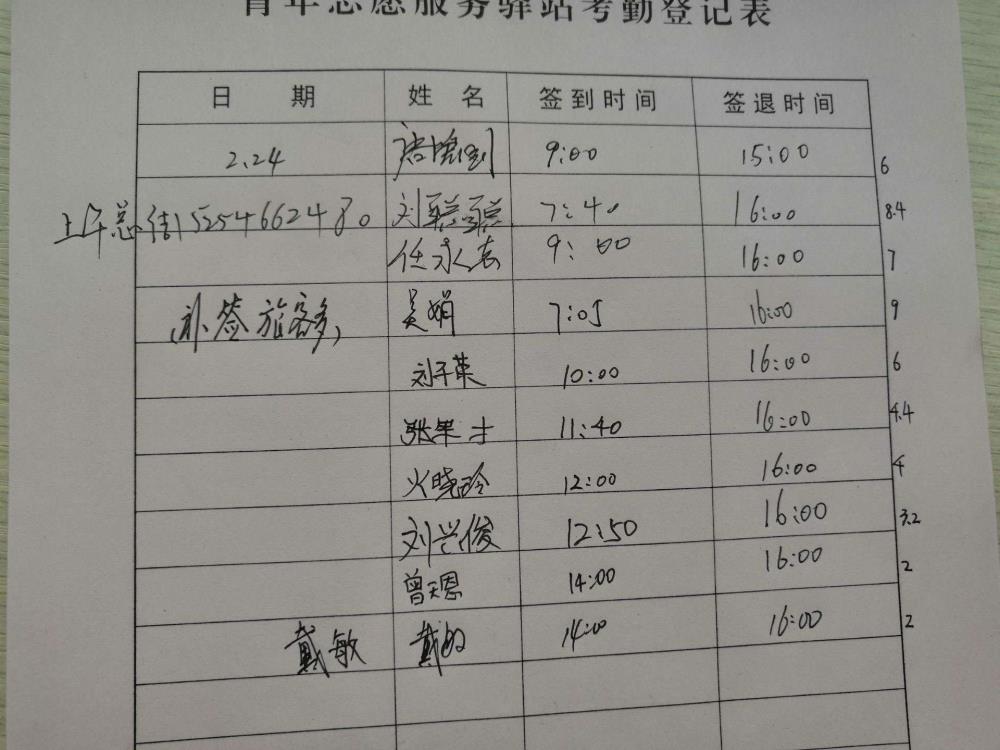 青年志愿服务驿站考勤登记表
日 期 姓 名 签到时间 签退时间
2.24 9:00 15:00 6
15254662480 刘聪聪 7:40 16:00 8.4
任永志 9:00 16:00 7
补签旅客多 吴娟 7:05 16:00 9
刘子英 10:00 16:00 6
张果才 11:40 16:00 4.4
火晓玲 12:00 16:00 4
刘兴俊 12:50 16:00 3.2
曾天恩 14:00 16:00 2
戴敏 戴敏 14:00 16:00 2